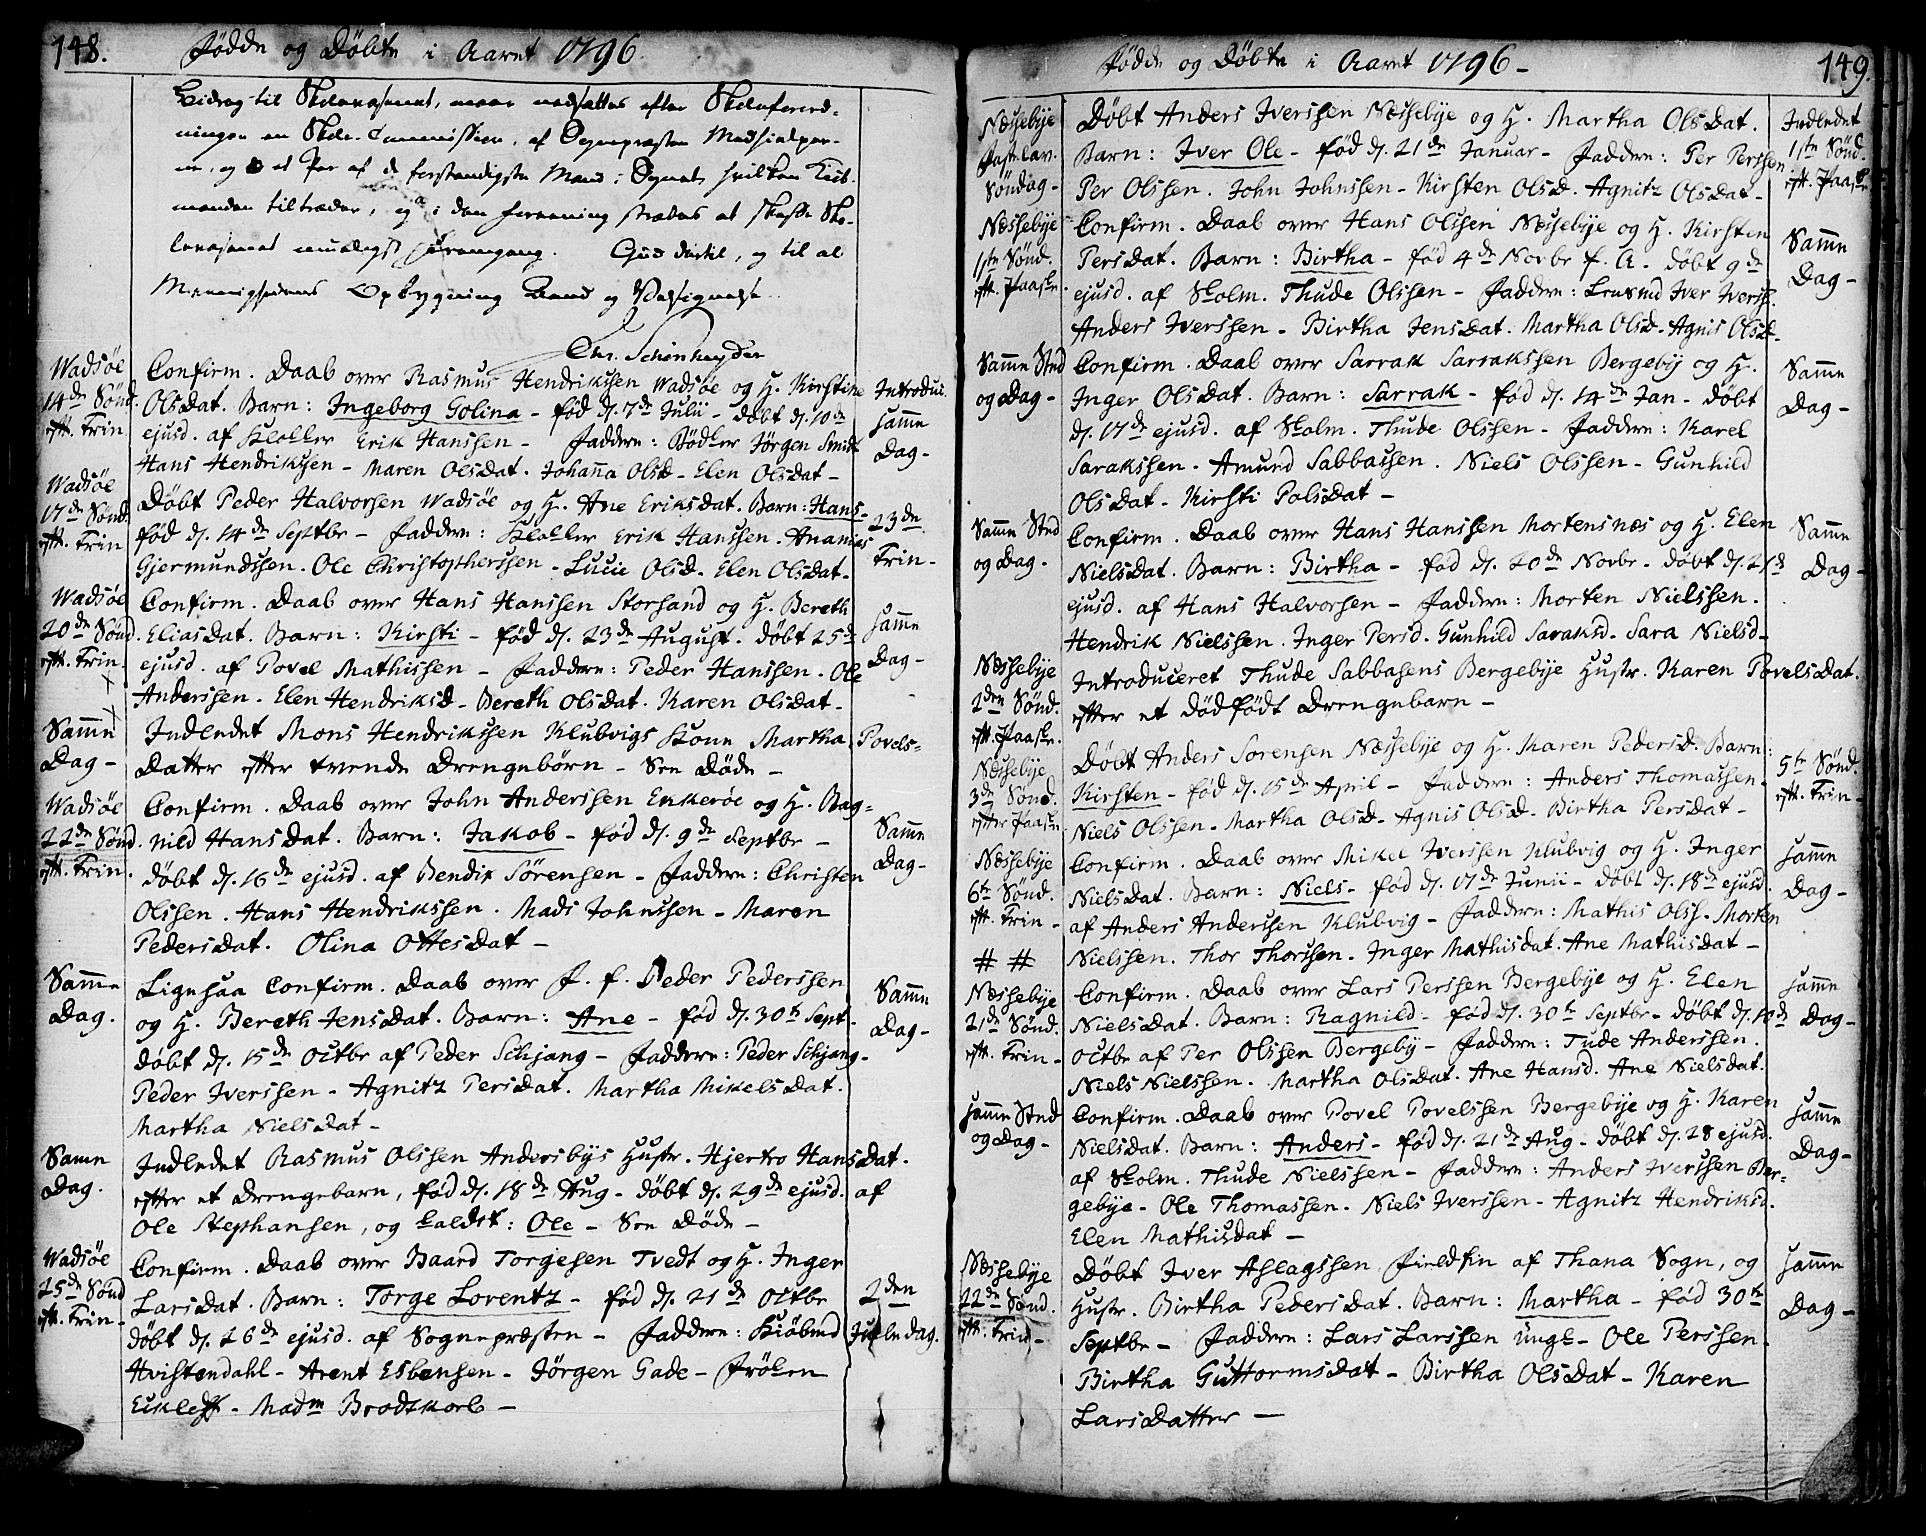 148.
Fødde og Døbte i Aaret 1796.
Bidrag til Skolevæsenet, maae nedsættes efter Skoleforord-
ningen en Skole-Commission, af Sognepræsten
og et Par af de forstandigste Mænd i Sognet, hvilken
tiltræder, og i den Forening stræbes at skaffe Sko-
levæsenet mueligst Fremgang. Gud dertil, og til al
Menighedens Opbygning Raad og Velsignelse.
Chr. Schönheyder
Wadsøe
14de Sønd.
eft. Trin
Confirm. Daab over Rasmus Hendrikssen Wadsøe og H. Kirstine
Olsdat. Barn: Ingeborg Golina - fød d. 7de Julii - døbt d. 10de
ejusd. af Klokker Erik Hanssen - Faddere: Bødker Jørgen Smidt
Hans Hendrikssen - Maren Olsdat. Johanna Olsd - Elen Olsdat -
Introduc.
samme
Dag -
Wadsøe
17de Sønd.
eft. Trin
Døbt Peder Halvorsen Wadsøe og H. Ane Eriksdat. Barn: Hans -
fød d. 14de Septbr - Faddere: Klokker Erik Hanssen. Ananias
Gjermundssen. Ole Christopherssen - Lucie Olsd. Elen Olsdat -
23de
Trin -
Wadsøe
20de Sønd.
eft. Trin -
Confirm. Daab over Hans Hanssen Storsand og H. Bereth
Eliasdat. Barn: Kirsti - fød d. 23de August. døbt 25de
ejusd. af Povel Mathissen - Faddere: Peder Hanssen. Ole
Anderssen. Elen Hendriksd - Bereth Olsdat. Karen Olsdat -
samme
Dag -
Samme
Dag -
Indledet Mons Hendrikssen Klubvigs Kone Martha Povels-
Datter efter tvende Drengebørn - See Døde -
Wadsøe
22de Sønd.
eft. Trin.
Confirm. Daab over John Anderssen Ekkerøe og H. Rag-
nild Hansdat. Barn: Jakob - fød d. 9de Septbr -
døbt d. 16de ejusd. af Bendix Sørensen - Faddere: Christen
Olssen. Hans Hendrikssen. Mads Johnssen - Maren
Pedersdat. Olina Ottesdat -
Samme
Dag -
Samme
Dag.
Ligesaa Confirm. Daab over J. f. Peder Pederssen
og H. Bereth Jensdat. Barn: Ane - fød d. 30te Sept -
døbt d. 15de Octbr af Peder Schjang - Faddere: Peder Schjang -
Peder Iverssen - Agnitz Persdat. Martha Mikelsdat.
Martha Nielsdat -
Samme
Dag -
Samme
Dag.
Indledet Rasmus Olssen Andersbys Hustr. Hjertro Hansdat.
efter et Drengebarn, fød d. 18de Aug - døbt d. 29de ejusd. af
Ole Stephansen, og kaldet: Ole - See Døde -
Wadsøe
25de Sønd
eft. Trin -
Confirm. Daab over Baard Torgesen Tvedt og H. Inger
Larsdat. Barn: Torge Lorentz - fød d. 21de Octbr
døbt d. 26de ejusd. af Sognepræsten - Faddere: Kiøbmd
Hvistendahl - Arent Esbensen - Jørgen Gade - Frøken
Eckleff - Madm Brodtkorb -
2den
Juledag.
149.
Fødde og Døbte i Aaret 1796 -
Næssebye
Fastelav.
Søndag -
Døbt Anders Iverssen Næssebye og H. Martha Olsdat.
Barn: Iver Ole - fød d. 21de Januar - Faddere: Per Perssen
Per Olssen. John Johnssen - Kirsten Olsd. Agnitz Olsdat -
Indledet
1ste Sønd.
eft. Paaske
Næssebye
1ste Sønd.
eft. Paaske.
Confirm. Daab over Hans Olssen Næssebye og H. Kirsten
Persdat. Barn: Birtha - fød 4de Novbr f. A. døbt 9de
ejusd. af Skolm. Thude Olssen - Faddere: Lensmd Iver Iverss.
Anders Iverssen - Birtha Jensdat. Martha Olsd. Agnis Olsd -
Samme
Dag -
Samme Sted
og Dag -
Confirm. Daab over Sarrak Sarrakssen Bergeby og H.
Inger Olsdat. Barn: Sarrak - fød d. 14de Jan - døbt
d. 17de ejusd. af Skolm. Thude Olssen - Faddere: Karel
Sarakssen. Amund Sabbassen. Niels Olssen - Gunhild
Olsdat - Kirsti Polsdat -
Samme
Dag -
Samme Sted
og Dag -
Confirm. Daab over Hans Hanssen Mortensnæs og H. Elen
Nielsdat. Barn: Birtha - fød d. 20de Novbr - døbt d. 21de
ejusd. af Hans Halvorsen - Faddere: Morten Nielssen.
Hendrik Nielssen. Inger Persd. Gunhild Saraksd. Sara Nielsd -
Samme
Dag -
Næssebye
2den Sønd.
eft. Paaske.
Introduceret Thude Sabbasens Bergebye Hustr. Karen Povelsdat.
efter et dødfødt Drengebarn -
Næssebye
3de Sønd.
efter Paaske
Døbt Anders Sørensen Næssebye og H. Maren Pedersd. Barn:
Kirsten - fød d. 15de April - Faddere: Anders Thomassen.
Niels Olssen - Martha Olsd - Agnis Olsd. Birtha Persdat -
5te Sønd.
eft. Trin -
Næssebye
6te Sønd.
eft. Trin -
# #
Confirm. Daab over Mikel Iverssen Klubvig og H. Inger
Nielsdat. Barn: Niels - fød d. 17de Junii - døbt d. 18de ejusd.
af Anders Anderssen Klubvig - Faddere: Mathis Olss. Morten
Nielssen. Thor Thorssen. Inger Mathisdat. Ane Mathisdat -
samme
Dag -
Næssebye
21de Sønd.
eft. Trin -
Confirm. Daab over Lars Perssen Bergebye og H. Elen
Nielsdat. Barn: Ragnild - fød d. 30te Septbr - døbt d. 10de
Octbr af Per Olssen Bergeby - Faddere: Tude Anderssen.
Niels Nielssen. Martha Olsdat. Ane Hansd. Ane Nielsdat.
samme
Dag -
samme Sted
og Dag -
Confirm. Daab over Povel Povelssen Bergebye og H. Karen
Nielsdat. Barn: Anders - fød d. 21de Aug - døbt d. 28 ejusd.
af Skolm. Thude Nielssen - Faddere: Anders Iverssen Ber-
gebye - Ole Thomassen. Niels Iverssen - Agnitz Hendriksd.
Elen Mathisdat -
samme
Dag -
Næssebye
22de Sønd.
eft. Trin -
Døbt Iver Aslagssen Fieldfin af Thana Sogn, og
Hustr. Birtha Pedersdat. Barn: Martha - fød 30te
Septbr - Faddere: Lars Larssen Ungk - Ole Perssen.
Birtha Guttormsdat - Birtha Olsdat - Karen
Larsdatter -
samme
Dag -